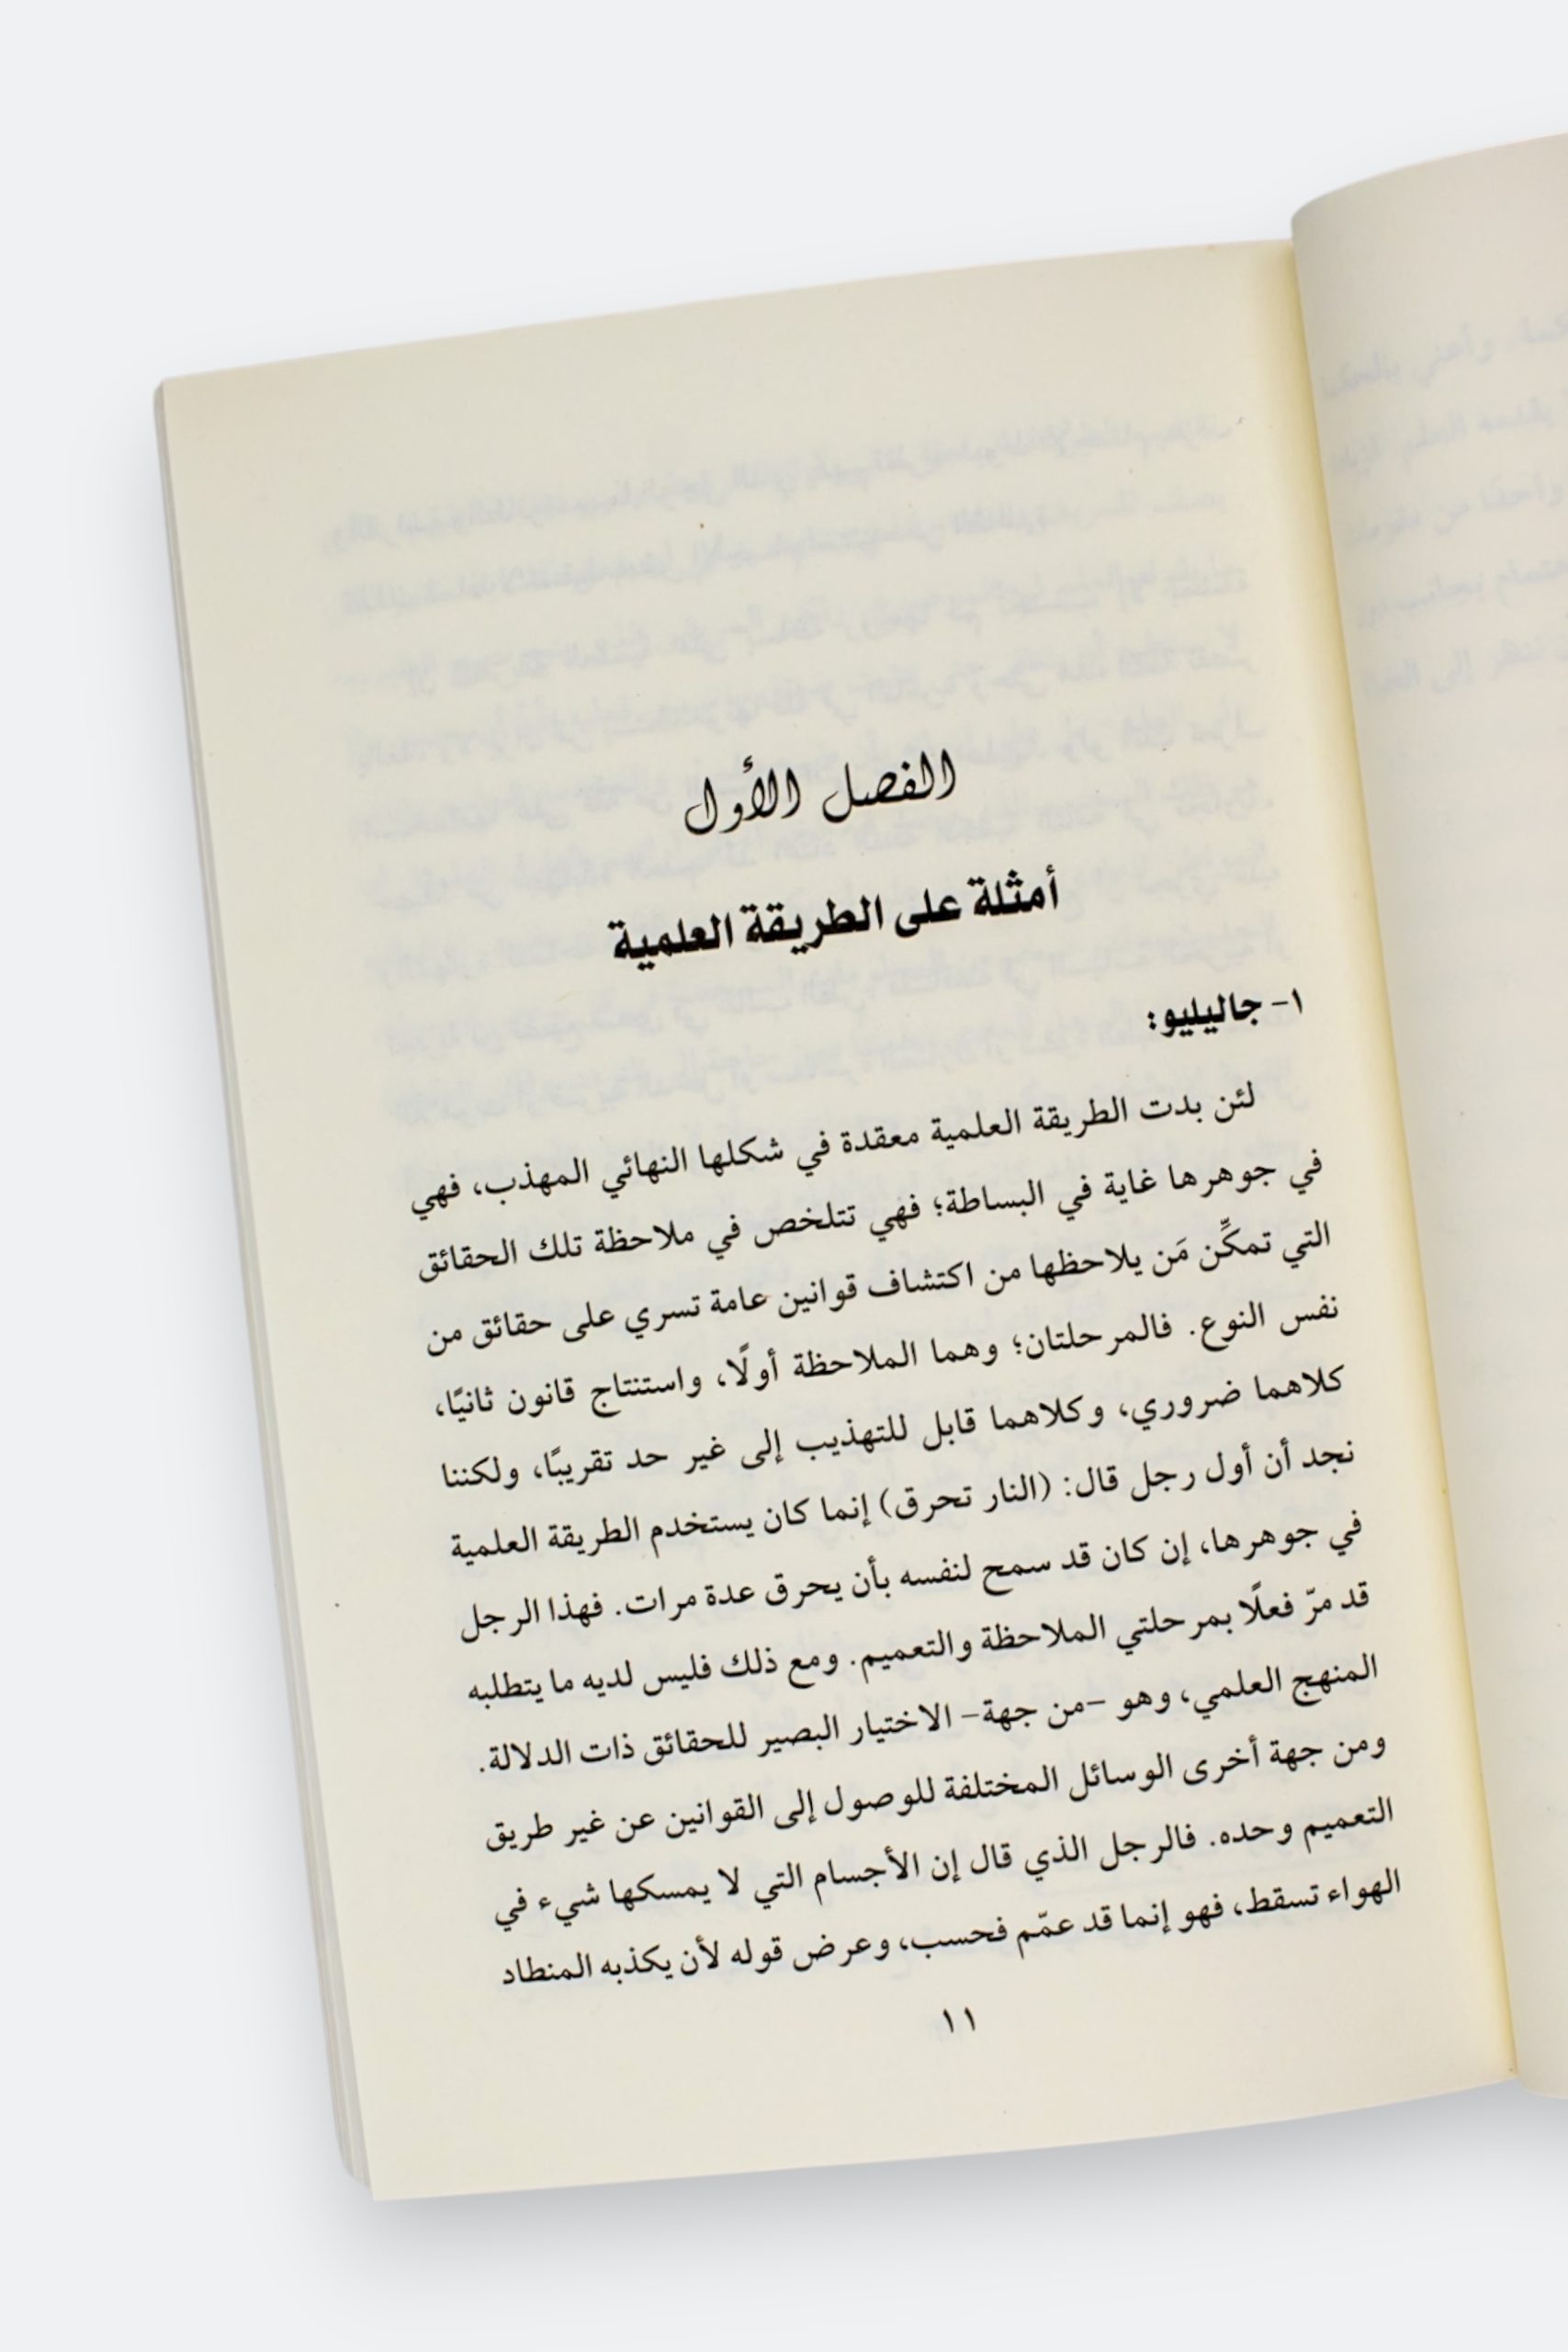 الفصل الأول
أمثلة على الطريقة العلمية
١- جاليليو:
لئن بدت الطريقة العلمية معقدة في شكلها النهائي المهذب، فهي
في جوهرها غاية في البساطة؛ فهي تتلخص في ملاحظة تلك الحقائق
التي تمكِّن مَن يلاحظها من اكتشاف قوانين عامة تسري على حقائق من
نفس النوع. فالمرحلتان؛ وهما الملاحظة أولًا، واستنتاج قانون ثانيًا،
كلاهما ضروري، وكلاهما قابل للتهذيب إلى غير حد تقريبًا، ولكننا
نجد أن أول رجل قال: (النار تحرق) إنما كان يستخدم الطريقة العلمية
في جوهرها، إن كان قد سمح لنفسه بأن يحرق عدة مرات. فهذا الرجل
قد مرّ فعلًا بمرحلتي الملاحظة والتعميم. ومع ذلك فليس لديه ما يتطلبه
المنهج العلمي، وهو -من جهة- الاختيار البصير للحقائق ذات الدلالة.
ومن جهة أخرى الوسائل المختلفة للوصول إلى القوانين عن غير طريق
التعميم وحده. فالرجل الذي قال إن الأجسام التي لا يمسكها شيء في
الهواء تسقط، فهو إنما قد عمّم فحسب، وعرض قوله لأن يكذبه المنطاد
١١